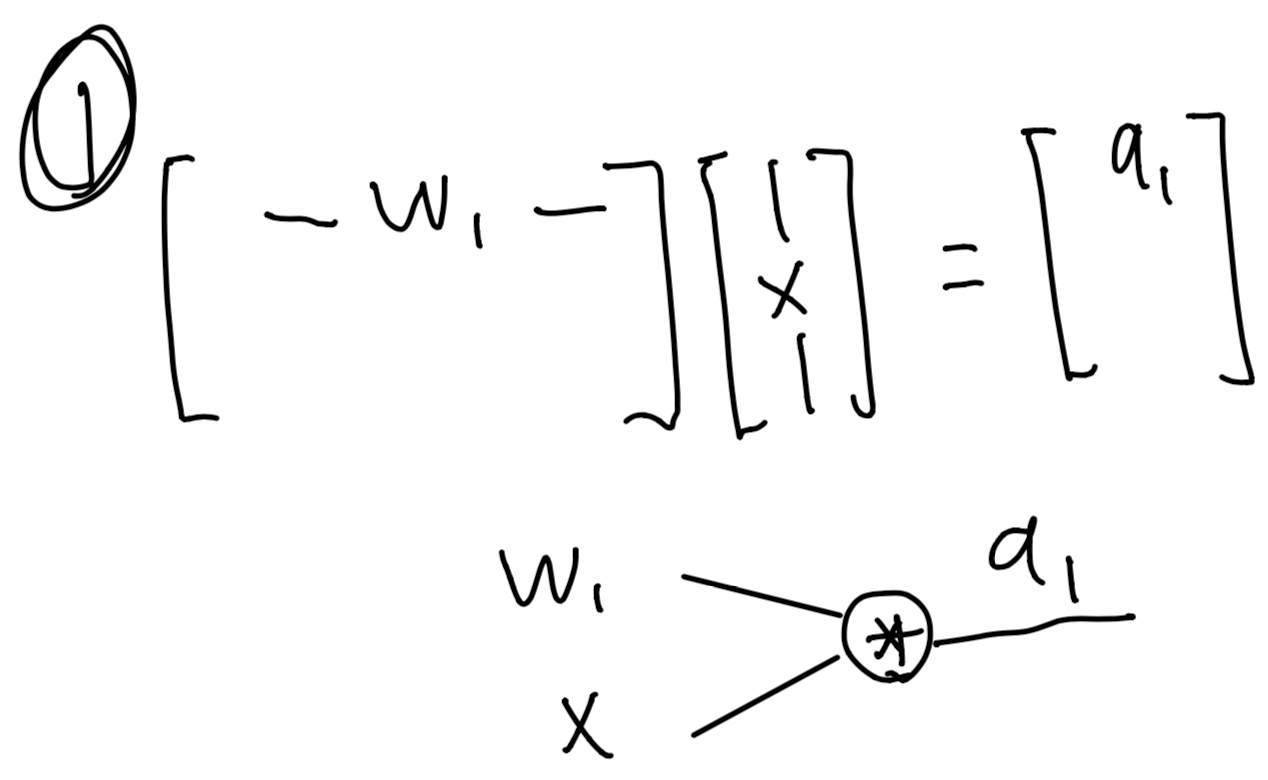 1
[ — w₁ — ] [ | x | ] = [ a₁ ]
w₁
a₁
*
x